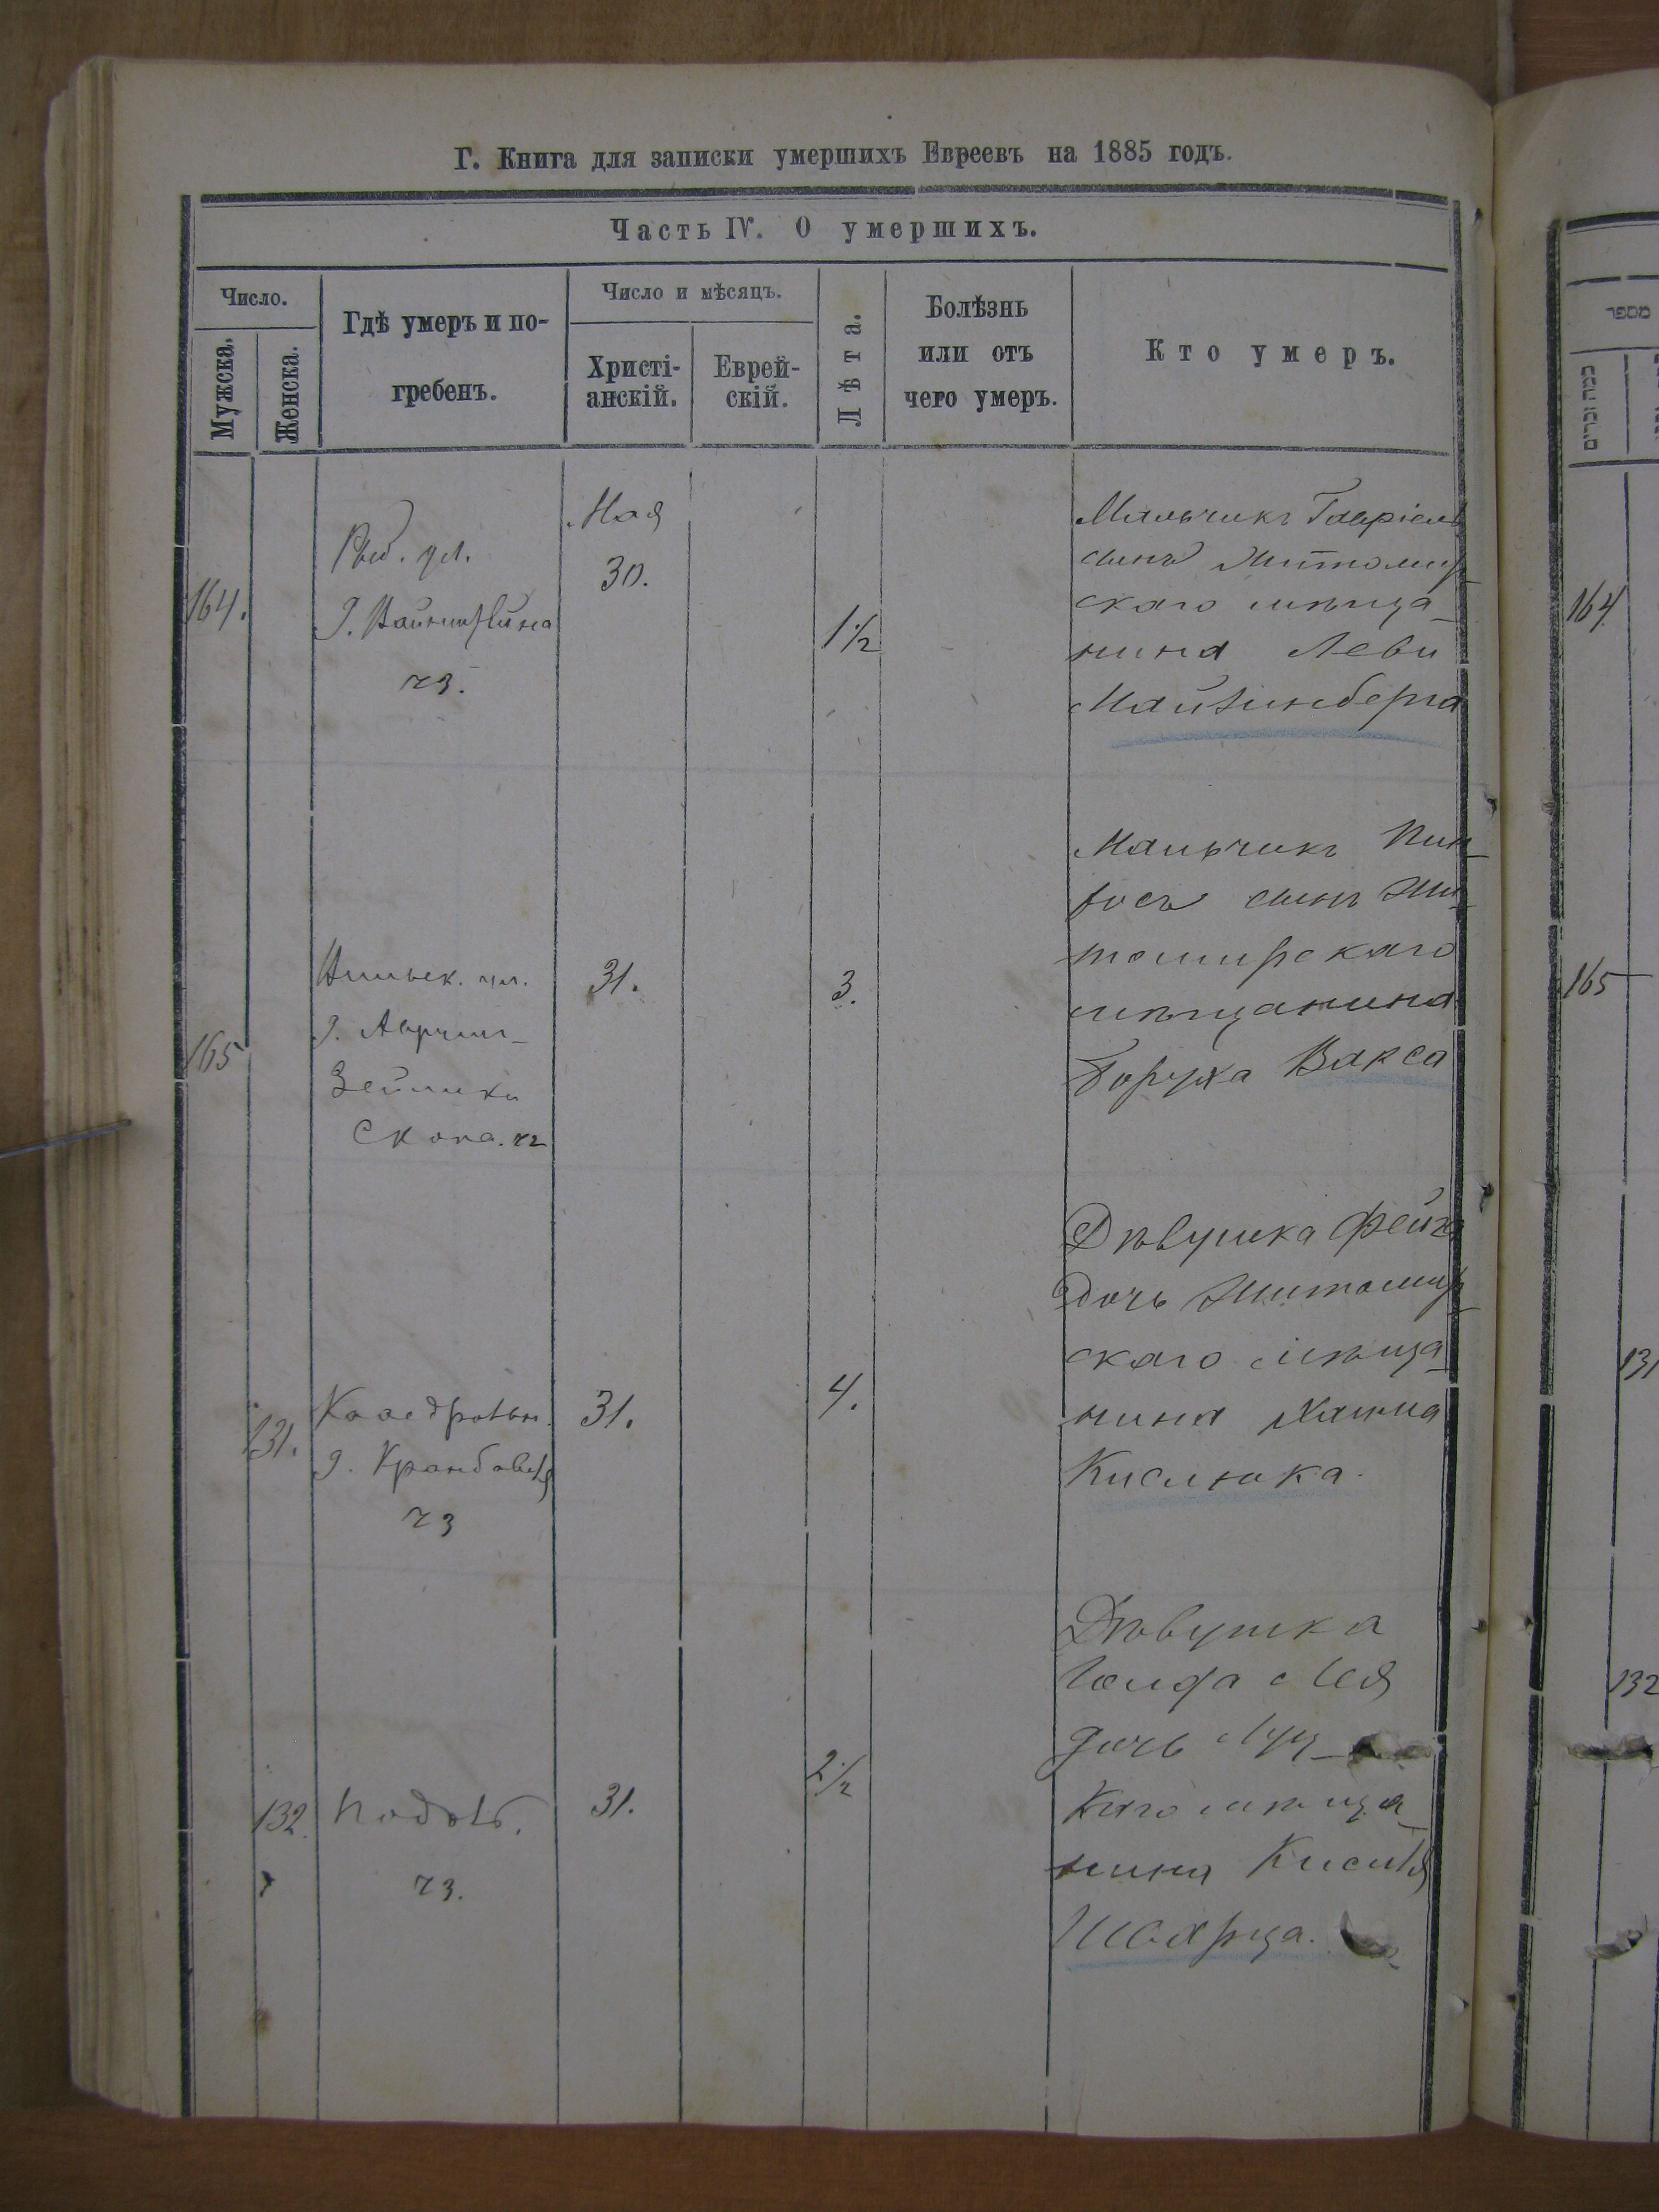 Г. Книга для записки умершихъ Евреевъ на 1885 годъ.
Часть IV. О умершихъ.
Число.
Мужска.
Женска.
Гдѣ умеръ и по-
гребенъ.
Число и мѣсяцъ.
Христі-
анскій.
Еврей-
скій.
Лѣта.
Болѣзнь
или отъ
чего умеръ.
Кто умеръ.
164.
Рыб. ул.
ч3.
Мая
30.
1 1/2
Мальчикъ Гавріель
сынъ Житомир-
скаго мѣща-
нина Леви
Майзинберга
165
Ильск. ул.
Скопа. ч2
31.
3.
Мальчикъ Пин-
хосъ сынъ Жи-
томирскаго
мѣщанина
Боруха Вакса
131.
Каѳедральн.
ч3
31.
4.
Дѣвушка Фейга
дочь Житомир-
скаго мѣща-
нина Хаима
Кислюка.
132.
Подолъ.
ч3.
31.
2 1/2
Дѣвушка
Гольда Лея
дочь Луц-
каго мѣща-
нина Кисиля
Шварца.
מספר
164
165
131
132